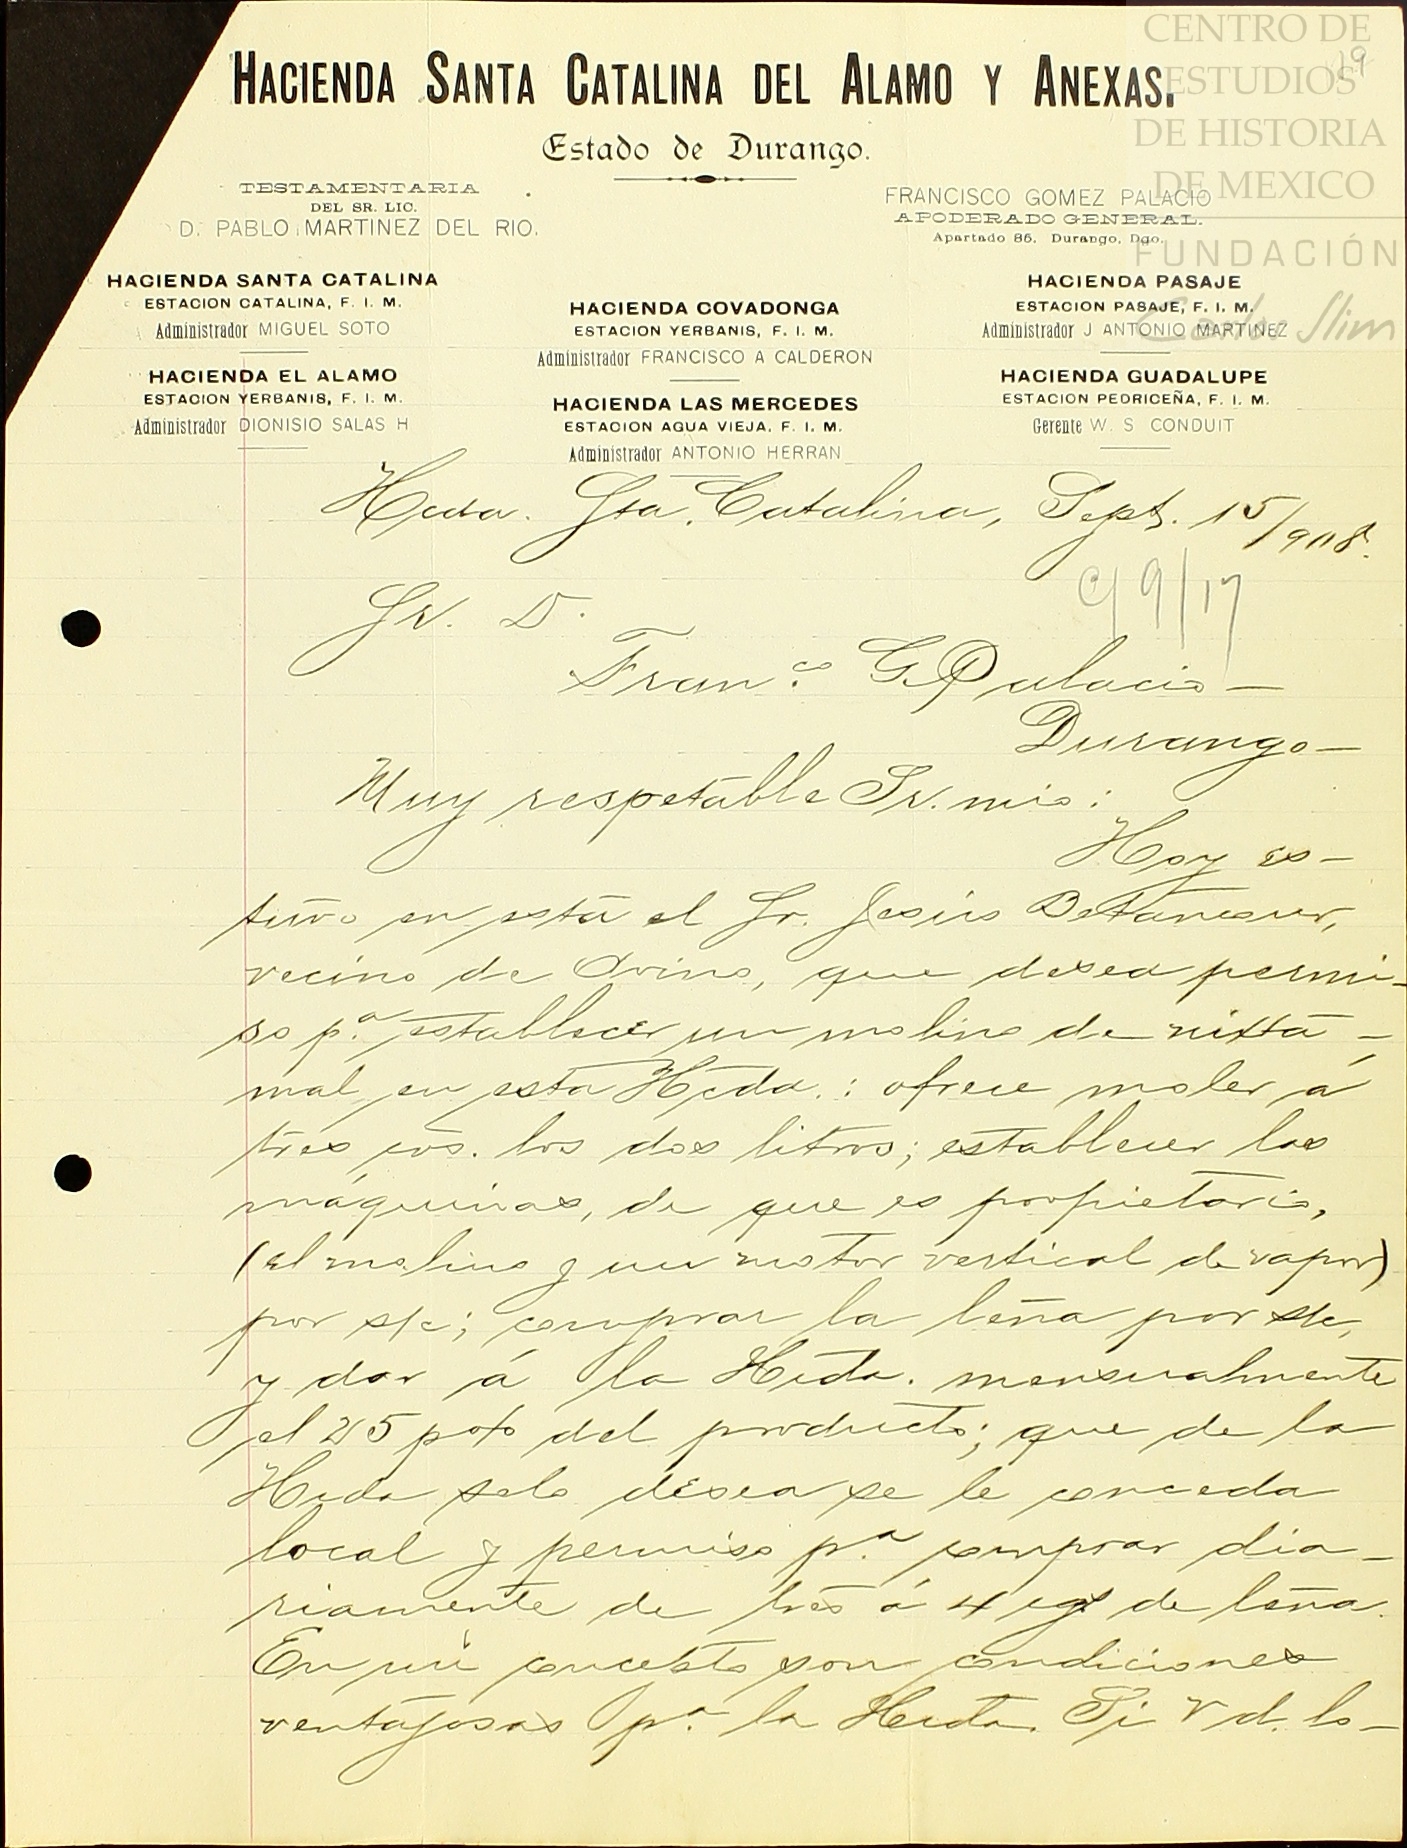 CENTRO DE
ESTUDIOS
DE HISTORIA
DE MEXICO
FUNDACIÓN
Carlos Slim
19
HACIENDA SANTA CATALINA DEL ALAMO Y ANEXAS.
Estado de Durango.
TESTAMENTARIA
DEL SR. LIC.
D. PABLO MARTINEZ DEL RIO.
FRANCISCO GOMEZ PALACIO
APODERADO GENERAL.
Apartado 86. Durango, Dgo.
HACIENDA SANTA CATALINA
ESTACION CATALINA, F. I. M.
Administrador MIGUEL SOTO
HACIENDA EL ALAMO
ESTACION YERBANIS, F. I. M.
Administrador DIONISIO SALAS H
HACIENDA COVADONGA
ESTACION YERBANIS, F. I. M.
Administrador FRANCISCO A CALDERON
HACIENDA LAS MERCEDES
ESTACION AGUA VIEJA, F. I. M.
Administrador ANTONIO HERRAN
HACIENDA PASAJE
ESTACION PASAJE, F. I. M.
Administrador J ANTONIO MARTINEZ
HACIENDA GUADALUPE
ESTACION PEDRICEÑA, F. I. M.
Gerente W. S CONDUIT
Hcda. Sta. Catalina, Sept. 15/908.
c/ 9/17
Sr. D.
Fran.co G. Palacio—
Durango—
Muy respetable Sr. mio:
Hoy es-
tuvo en esta el Sr. Jesús Betancur,
vecino de Avino, que desea permi-
so p.a establecer un molino de nixta-
mal en esta Hcda.: ofrece moler á
tres cvs. los dos litros; establecer las
máquinas, de que es propietario,
(el molino y un motor vertical de vapor)
por s/c; comprar la leña por s/c,
y dar á la Hcda. mensualmente
el 25 p% del producto; que de la
Hcda solo desea se le conceda
local y permiso p.a comprar dia-
riamente de tres á 4 cgs de leña.
En mi concepto son condiciones
ventajosas p.a la Hcda. Si Vd. lo-